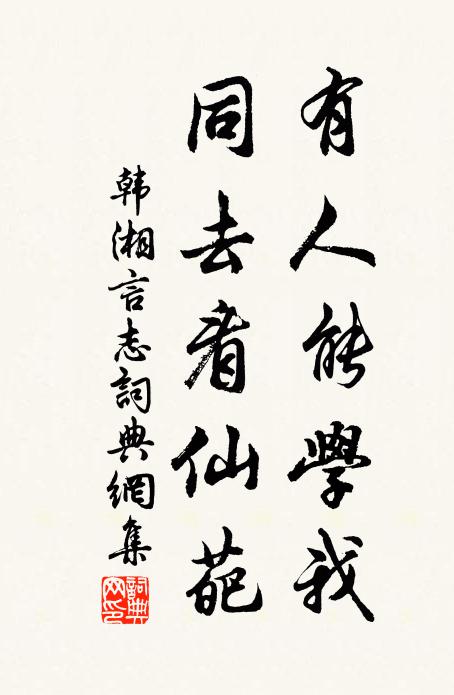 有人能學我
同去看仙葩
韩湘言志詞典網集
詞典
网印